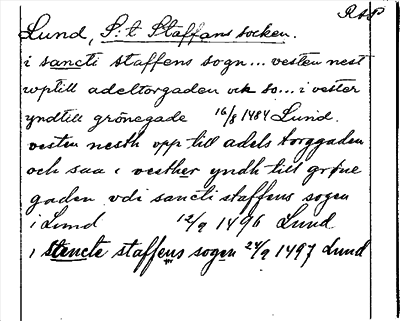 RAP
Lund, S:t Staffans socken.
i sancti staffens sogn... vesten nest
wptill adeltorgaden ock so... i vester
yndtill grönegade 16/8 1484 Lund.
vesten nesth vpp till adels torggaden
och saa i vesther yndh till grøne
gaden vdi sancti staffens sogen
i Lund 12/9 1496 Lund
i stencte staffens sogen 24/9 1497 Lund